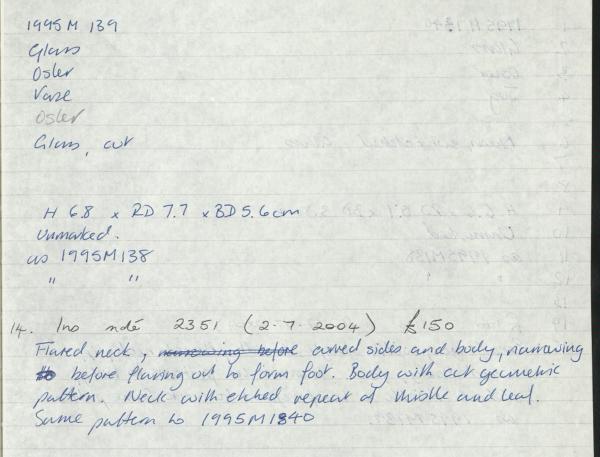 1995 M 139
Glass
Osler
Vase
Osler
Glass, cut
H 6.8 x RD 7.7 x BD 5.6 cm
Unmarked.
as 1995M138
" "
14. Ins note 2351 (2.7.2004) £150
Flared neck, narrowing before curved sides and body, narrowing
before flaring out to form foot. Body with cut geometric
pattern. Neck with etched repeat of thistle and leaf.
Same pattern to 1995M1840